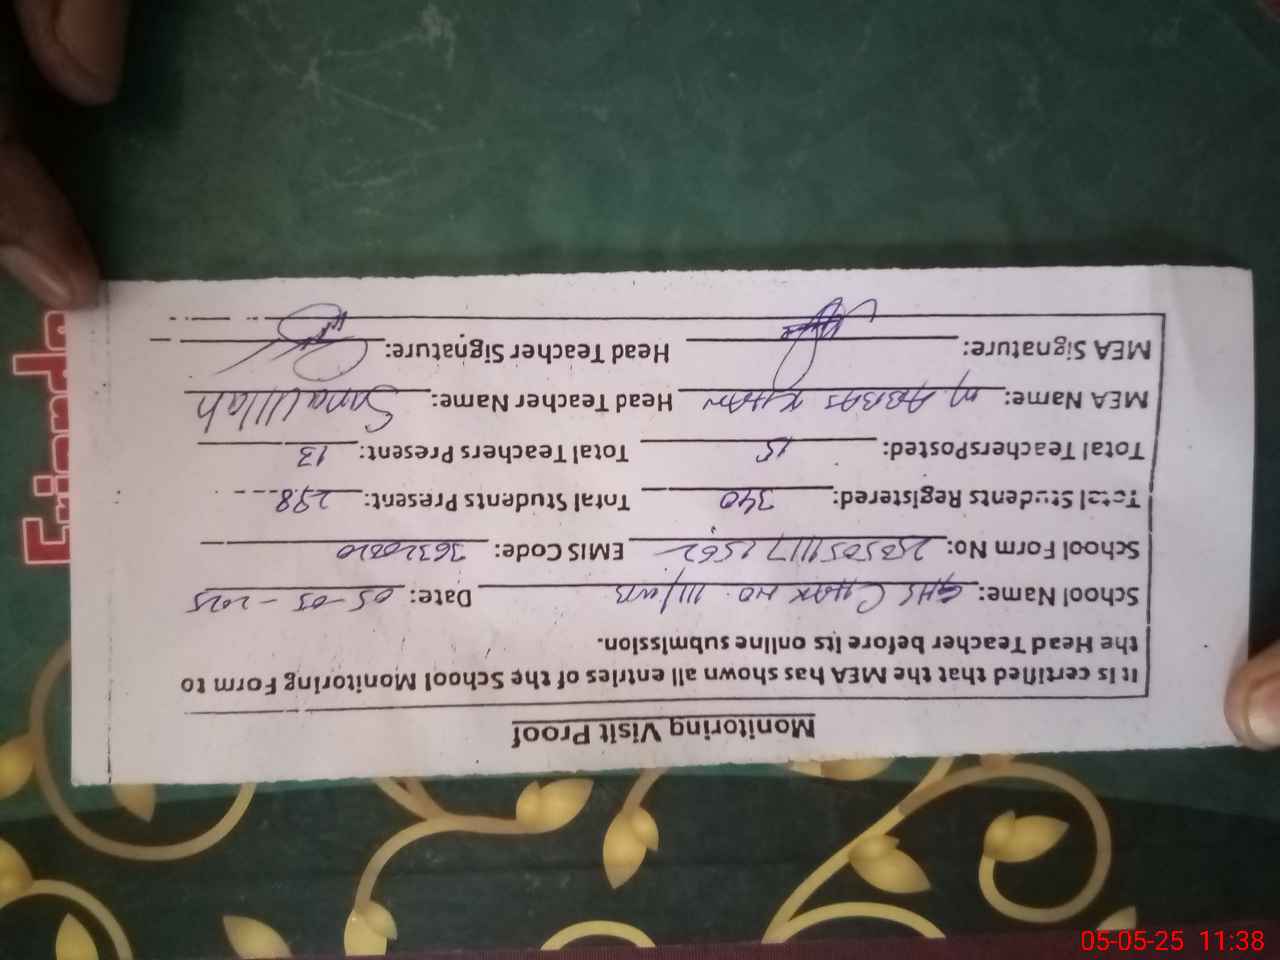 Monitoring Visit Proof
It is certified that the MEA has shown all entries of the School Monitoring Form to
the Head Teacher before its online submission.
School Name: GHS CHAK NO. 111/WB Date: 05-05-2025
School Form No: EMIS Code: 36320820
Total Students Registered: 340 Total Students Present: 298
Total TeachersPosted: 15 Total Teachers Present: 13
MEA Name: M. ABBAS KHAN Head Teacher Name: Sana Ullah
MEA Signature: Head Teacher Signature:
Friends
05-05-25 11:38